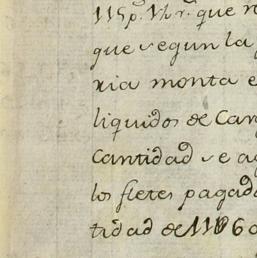 115p. 1/2 r. que
que segun la
ria monta
liquidos de Car
Cantidad se a
los fletes pagad
tidad de 11060